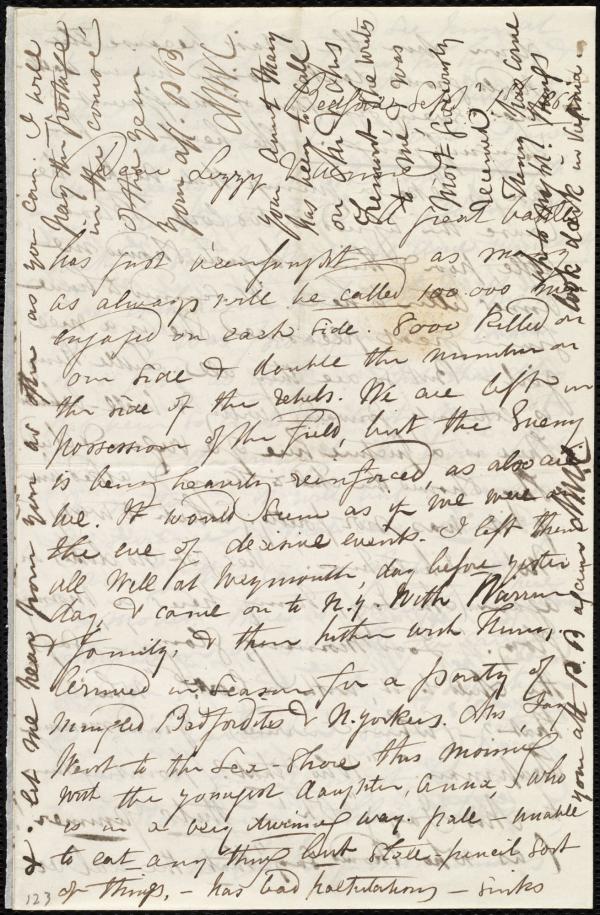 Bedford Sept 1st 186
Dear Lizzy & Emma
A great battle
has just been fought — as many
as always will be called, 100.000 men
engaged on each side. 8000 killed on
our side & double the number on
the side of the rebels. We are left in
possession of the Field, but the Enemy
is being heavily reinforced, as also are
we. It would seem as if we were on
the eve of decisive events. I left them
all well at Weymouth, day before yester
day, & came on to N.Y. with Warren
& family, & then hither with Henry.
Arrived in season for a party of
mingled Bedfordites & N.yorkers. Mrs Jay
went to the sea-shore this morning
with the youngest daughter, Anna, who
is in a very way. pale — unable
to eat any thing but slate-pencil sort
of things, — has bad palpitations — sinks
& let me hear from you as often as you can. I will
pay the postage
in the course
of the year
Your aff. P B
M.W.C.
Your Aunt Mary
has been to call
on Mrs
He writes
to me, & was
most graciously
received.
Henry has come
who to say it! Things
look dark in Virginia.
Your aff P. B again M.W.C.
123